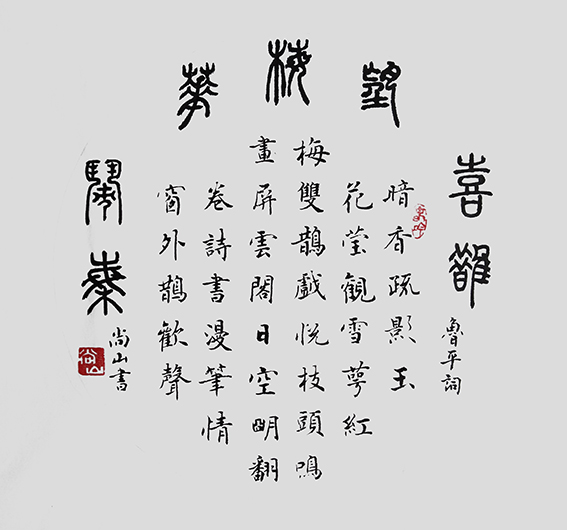 喜鵲
望梅華
鬧春
魯平詞
暗香疏影玉
花瑩観雪萼紅
梅雙鵲戲悅枝頭鳴
畫屏雲閣日空明翻
卷詩書漫筆情
窗外鵲歡聲
尚山書
尚山